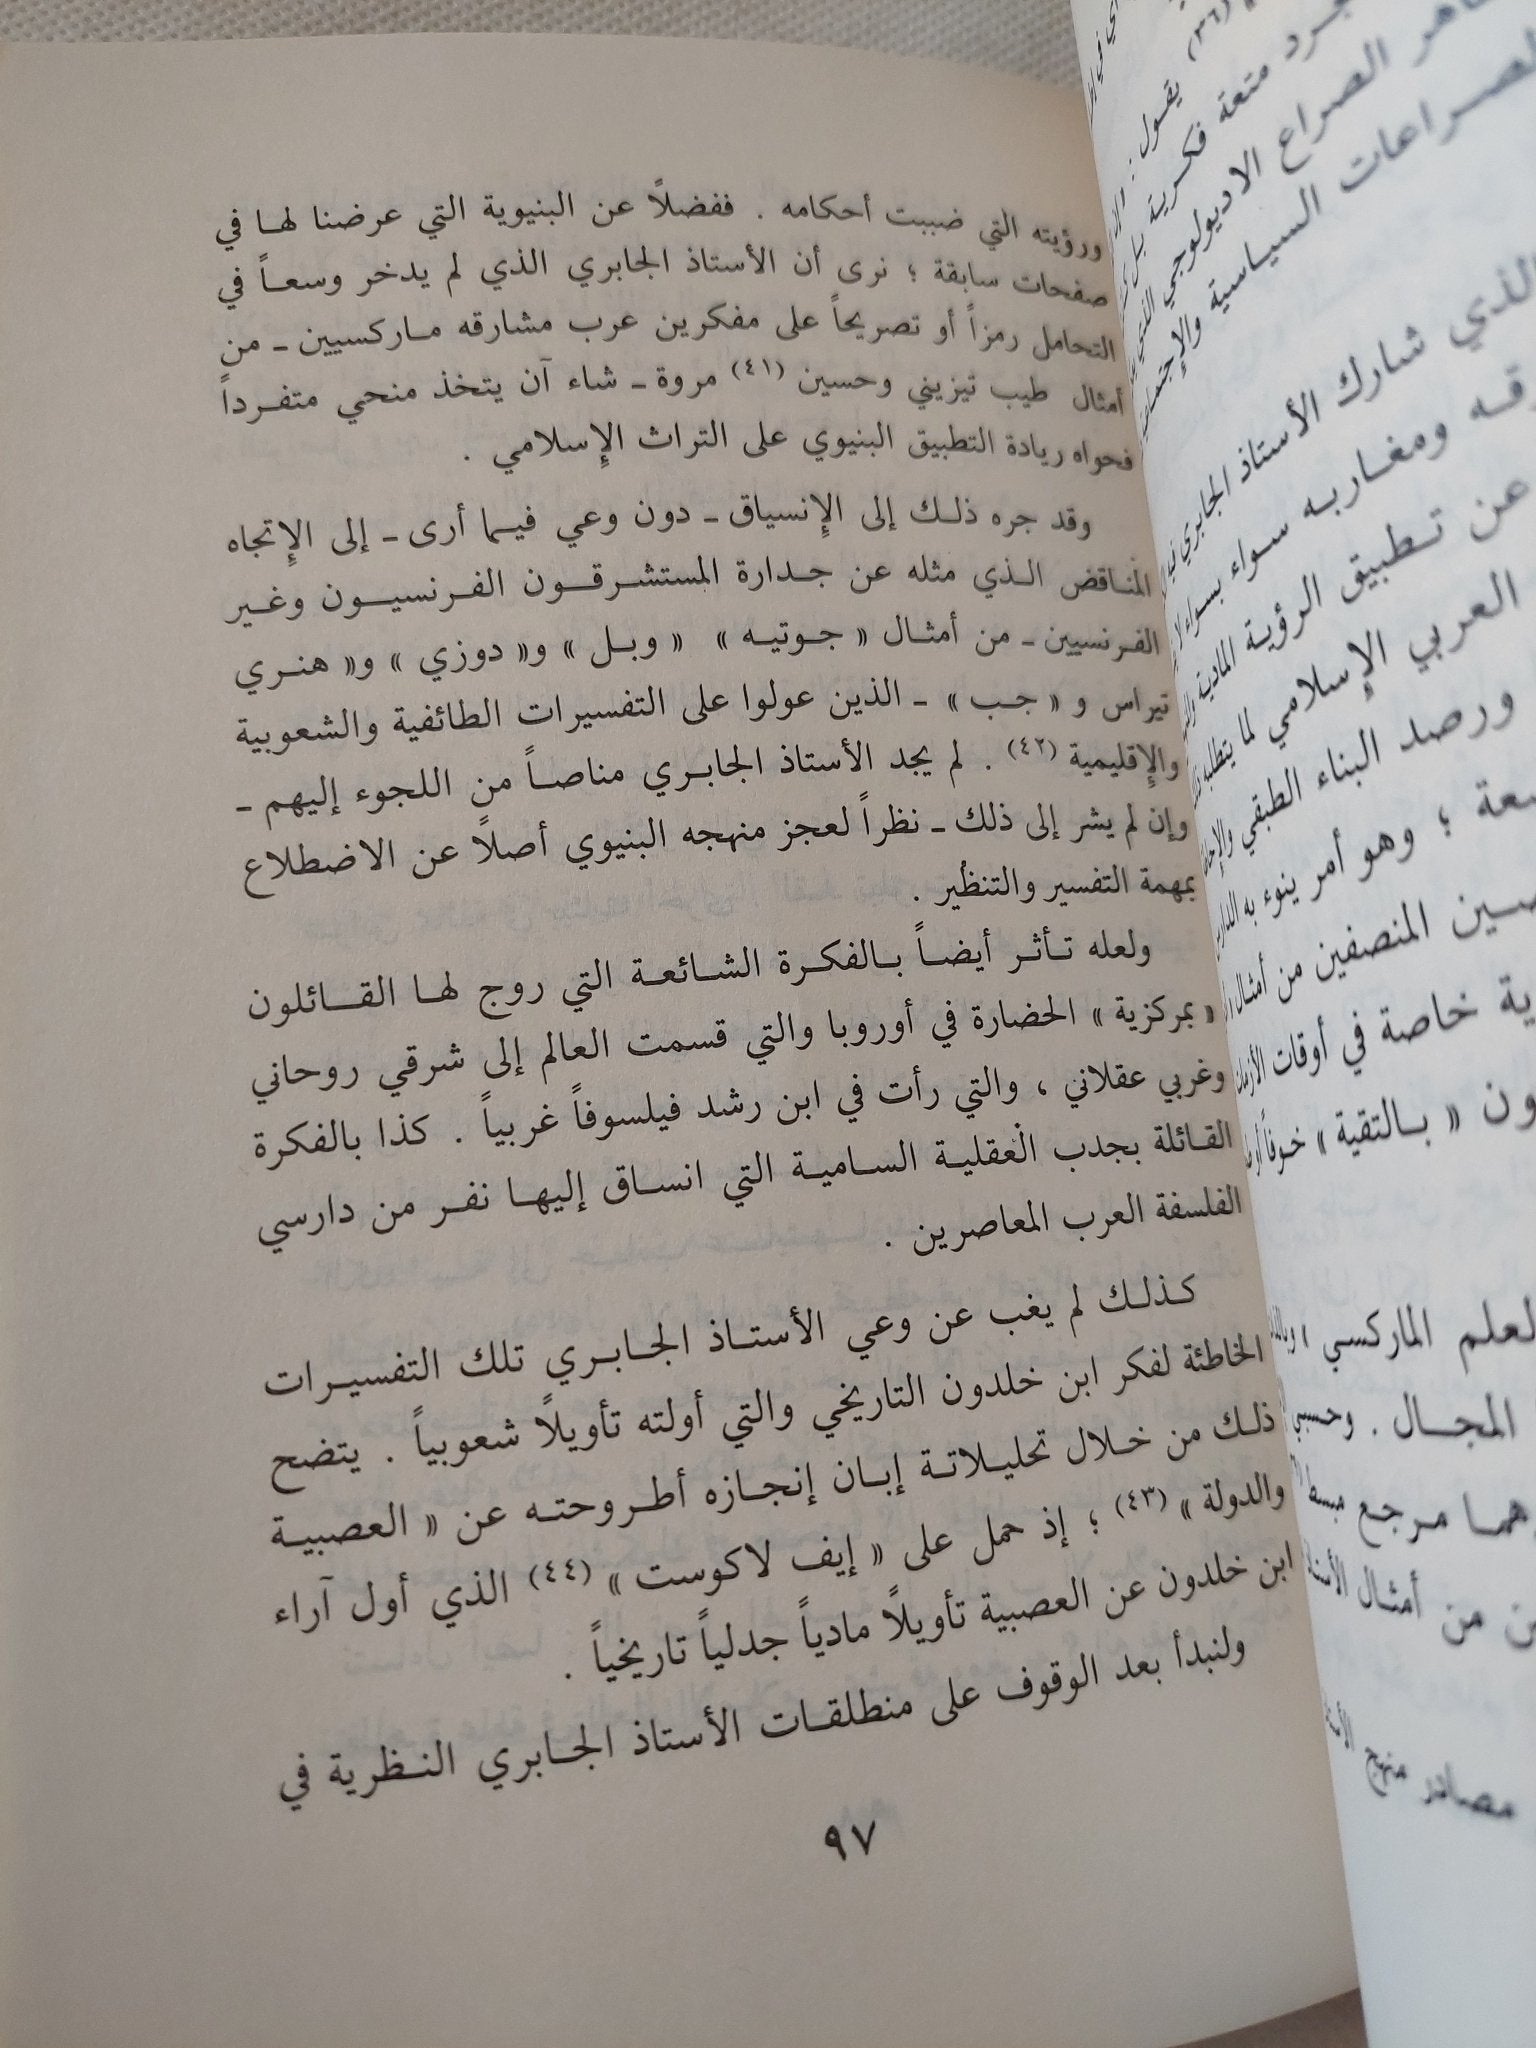 ورؤيته التي ضببت أحكامه . ففضلاً عن البنيوية التي عرضنا لهـا في
صفحات سابقة ؛ نرى أن الأستاذ الجابري الذي لم يدخر وسعـاً في
التحامل رمزاً أو تصريحاً على مفكرين عرب مشارقه مـاركسيين ـ من
أمثال طيب تيزيني وحسين (٤١) مروة ـ شاء آن يتخذ منحي متفـرداً
فحواه ريادة التطبيق البنيوي على التراث الإسلامي .
وقد جره ذلـك إلى الإنسياق ـ دون وعي فيـما أرى ـ إلى الإتجاه
المناقض الـذي مثله عن جـدارة المستشـرقـون الفـرنسيـون وغـير
الفـرنسيين ـ من أمثـال « جـوتيـه » « وبـل » و« دوزي » و« هنـري
تيراس و « جـب » ـ الذين عولوا على التفسيرات الطائفية والشعوبية
والإقليمية (٤٢) . لم يجد الأستاذ الجابـري مناصـاً من اللجوء إليهم ـ
وإن لم يشر إلى ذلك ـ نظراً لعجز منهجه البنيوي أصلاً عن الاضطلاع
بمهمة التفسير والتنظير .
ولعله تـأثـر أيضـاً بـالفكـرة الشـائعـة التي روج لهـا القـائلون
« بمركزية » الحضارة في أوروبا والتي قسمت العالم إلى شرقي روحاني
وغربي عقلاني ، والتي رأت في ابن رشد فيلسوفاً غربياً . كذا بالفكرة
القـائلة بجدب العقليـة السـاميـة التي انسـاق إليهـا نفـر من دارسي
الفلسفة العرب المعاصرين .
كـذلـك لم يغب عن وعي الأستـاذ الجـابـري تلك التفسيـرات
الخاطئة لفكر ابن خلدون التاريخي والتي أولته تأويلاً شعوبياً . يتضح
ذلـك من خـلال تحليـلاتـة إبـان إنجـازه أطـروحتـه عن « العصبيـة
والدولة » (٤٣) ؛ إذ حمل على « إيف لاكوست » (٤٤) الذي أول آراء
ابن خلدون عن العصبية تأويلاً مادياً جدلياً تاريخياً .
ولنبدأ بعد الوقوف على منطلقـات الأستاذ الجـابري النـظرية في
٩٧
يقـول :
جـرد متعة فكـرية
الصراع الاديولوجي
الصـراعات السيـاسية
الذي شارك الأستاذ الجابري
ومغـاربـه سواء بسواء
عن تـطبيق الرؤيـة المادية
العربي الإسلامي لما
ورصد البناء الطبقي
؛ وهو أمر ينوء به
المنصفين من أمثال
خاصة في أوقات
« بـالتقية » خـوفاً
الماركسي »
المجـال . وحسبي
مـرجـع
من أمثـال
مصـادر منهج